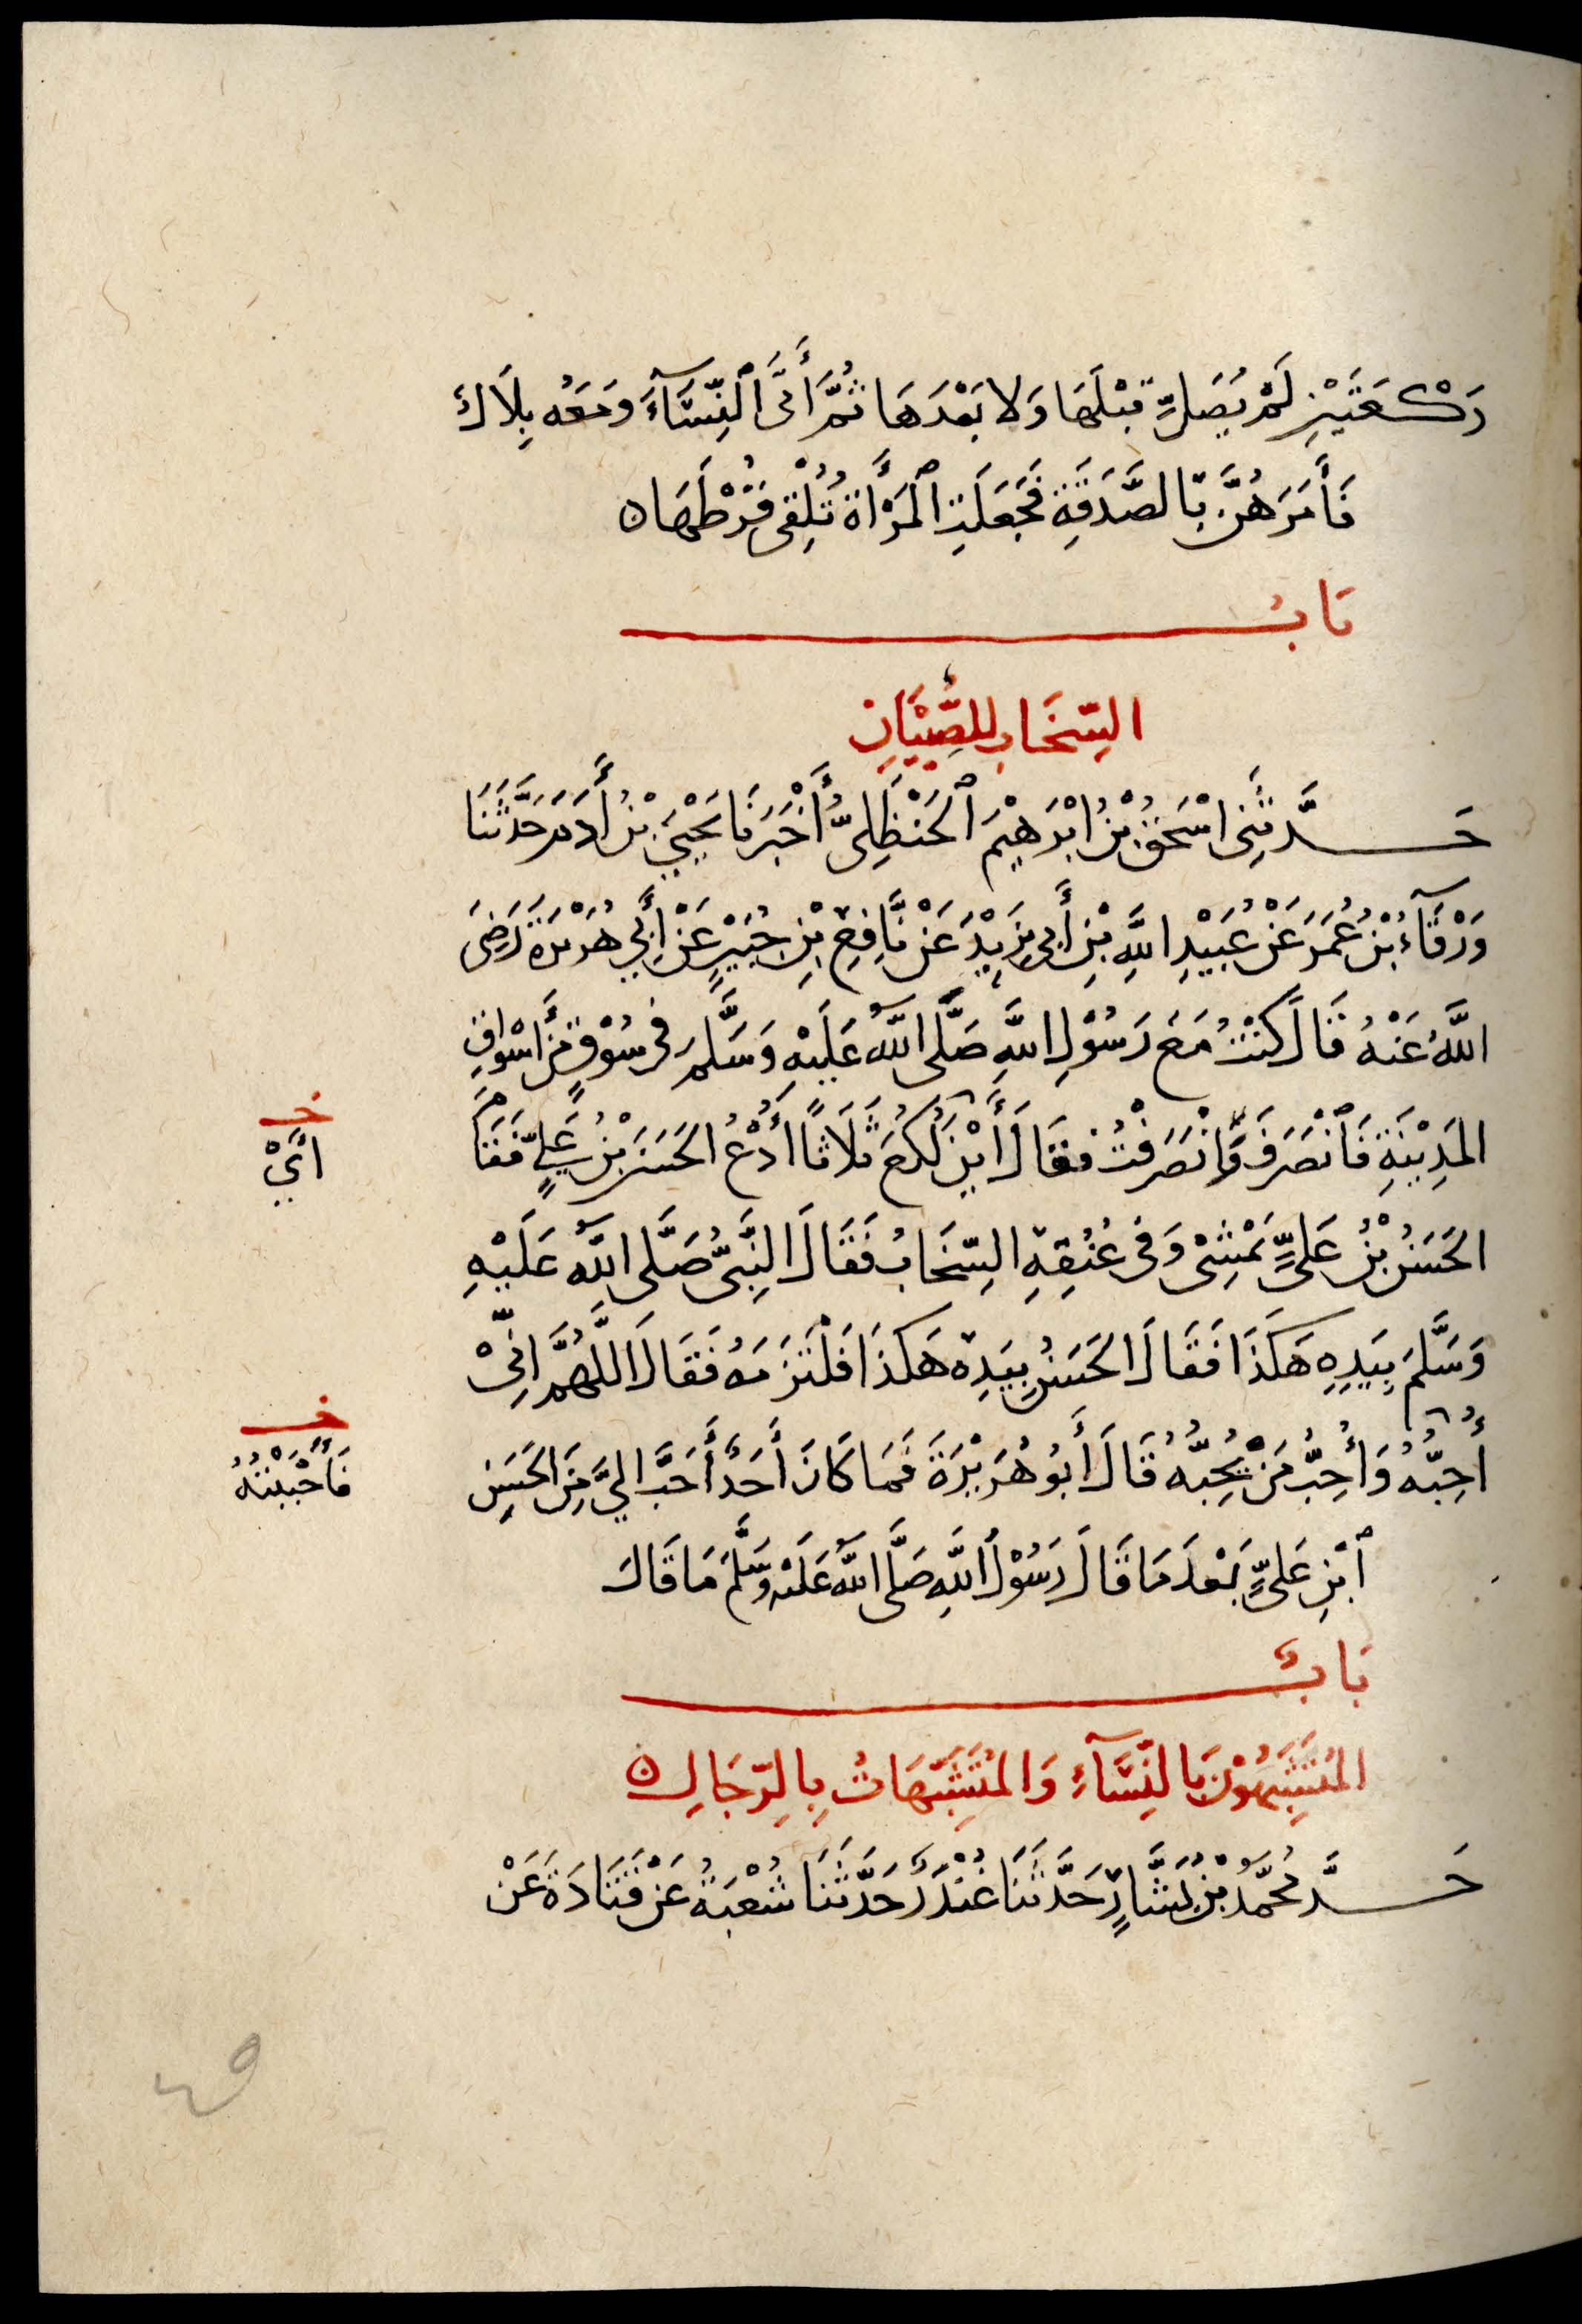 رَكْعَتَيْنِ لَمْ يُصَلِّ قَبْلَهَا وَلَا بَعْدَهَا ثُمَّ أَتَى ٱلنِّسَآءَ وَمَعَهُ بِلَالٌ
فَأَمَرَهُنَّ بِالصَّدَقَةِ فَجَعَلَتِ ٱلْمَرْأَةُ تُلْقِي قُرْطَهَا ن
بَابُ
السِّخَابِ لِلصِّبْيَانِ
حَدَّثَنِي اسْحَقُ بْنُ ابْرَهِيْمَ ٱلْحَنْظَلِيُّ أَخْبَرَنَا يَحْيَى بْنُ أَدَمَ حَدَّثَنَا
وَرْقَآءُ بْنُ عُمَرَ عَنْ عُبَيْدِ اللَّهِ بْنِ أَبِي يَزِيْدَ عَنْ نَافِعِ بْنِ جُبَيْرٍ عَنْ أَبِي هُرَيْرَةَ رَضِيَ
اللَّهُ عَنْهُ قَالَ كُنْتُ مَعَ رَسُوْلِ اللَّهِ صَلَّى اللَّهُ عَلَيْهِ وَسَلَّمَ فِي سُوْقٍ مِنْ أَسْوَاقِ
المَدِيْنَةِ فَٱنْصَرَفَ وَٱنْصَرَفْتُ فَقَالَ أَيْنَ لُكَعُ ثَلَاثًا أُدْعُ الحَسَنَ بْنَ عَلِيٍّ فَقَامَ
الحَسَنُ بْنُ عَلِيٍّ يَمْشِي وَفِي عُنُقِهِ السِّخَابُ فَقَالَ النَّبِيُّ صَلَّى اللَّهُ عَلَيْهِ
وَسَلَّمَ بِيَدِهِ هَكَذَا فَقَالَ الحَسَنُ بِيَدِهِ هَكَذَا فَلْتَزَمَهُ فَقَالَ اللَّهُمَّ انِّيْ
أُحِبُّهُ وَأُحِبُّ مَنْ يُحِبُّهُ قَالَ أَبُو هُرَيْرَةَ فَمَا كَانَ أَحَدٌ أَحَبَّ الَيَّ مِنَ الحَسَنِ
ٱبْنِ عَلِيٍّ بَعْدَ مَا قَالَ رَسُوْلُ اللَّهِ صَلَّى اللَّهُ عَلَيْهِ وَسَلَّمَ مَا قَالَ
بَابٌ
المُتَشَبِّهُوْنَ بِالنِّسَآءِ وَالمُتَشَبِّهَاتُ بِالرِّجَالِ ن
حَدَّ مُحَمَّدُ بْنُ بَشَّارٍ حَدَّثَنَا غُنْدَرٌ حَدَّثَنَا شُعْبَةُ عَنْ قَتَادَةَ عَنْ
خ
أَيْ
خ